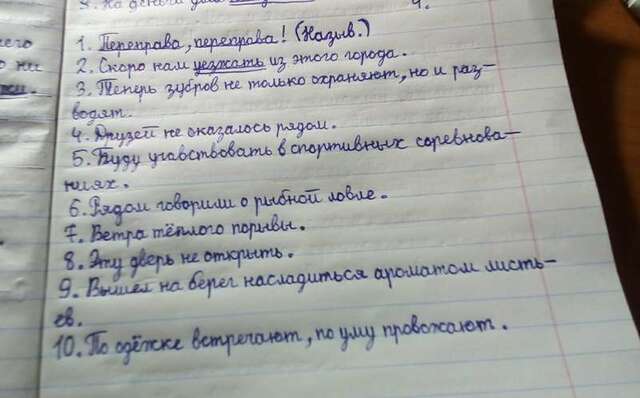 8. На деньги дома
1. Переправа, переправа! (Назыв.)
2. Скоро нам уезжать из этого города.
3. Теперь зубров не только охраняют, но и раз-
водят.
4. Друзей не оказалось рядом.
5. Буду учавствовать в спортивных соревнова-
ниях.
6. Рядом говорили о рыбной ловле.
7. Ветра тёплого порывы.
8. Эту дверь не открыть.
9. Вышел на берег насладиться ароматом листь-
ев.
10. По одёжке встречают, по уму провожают.